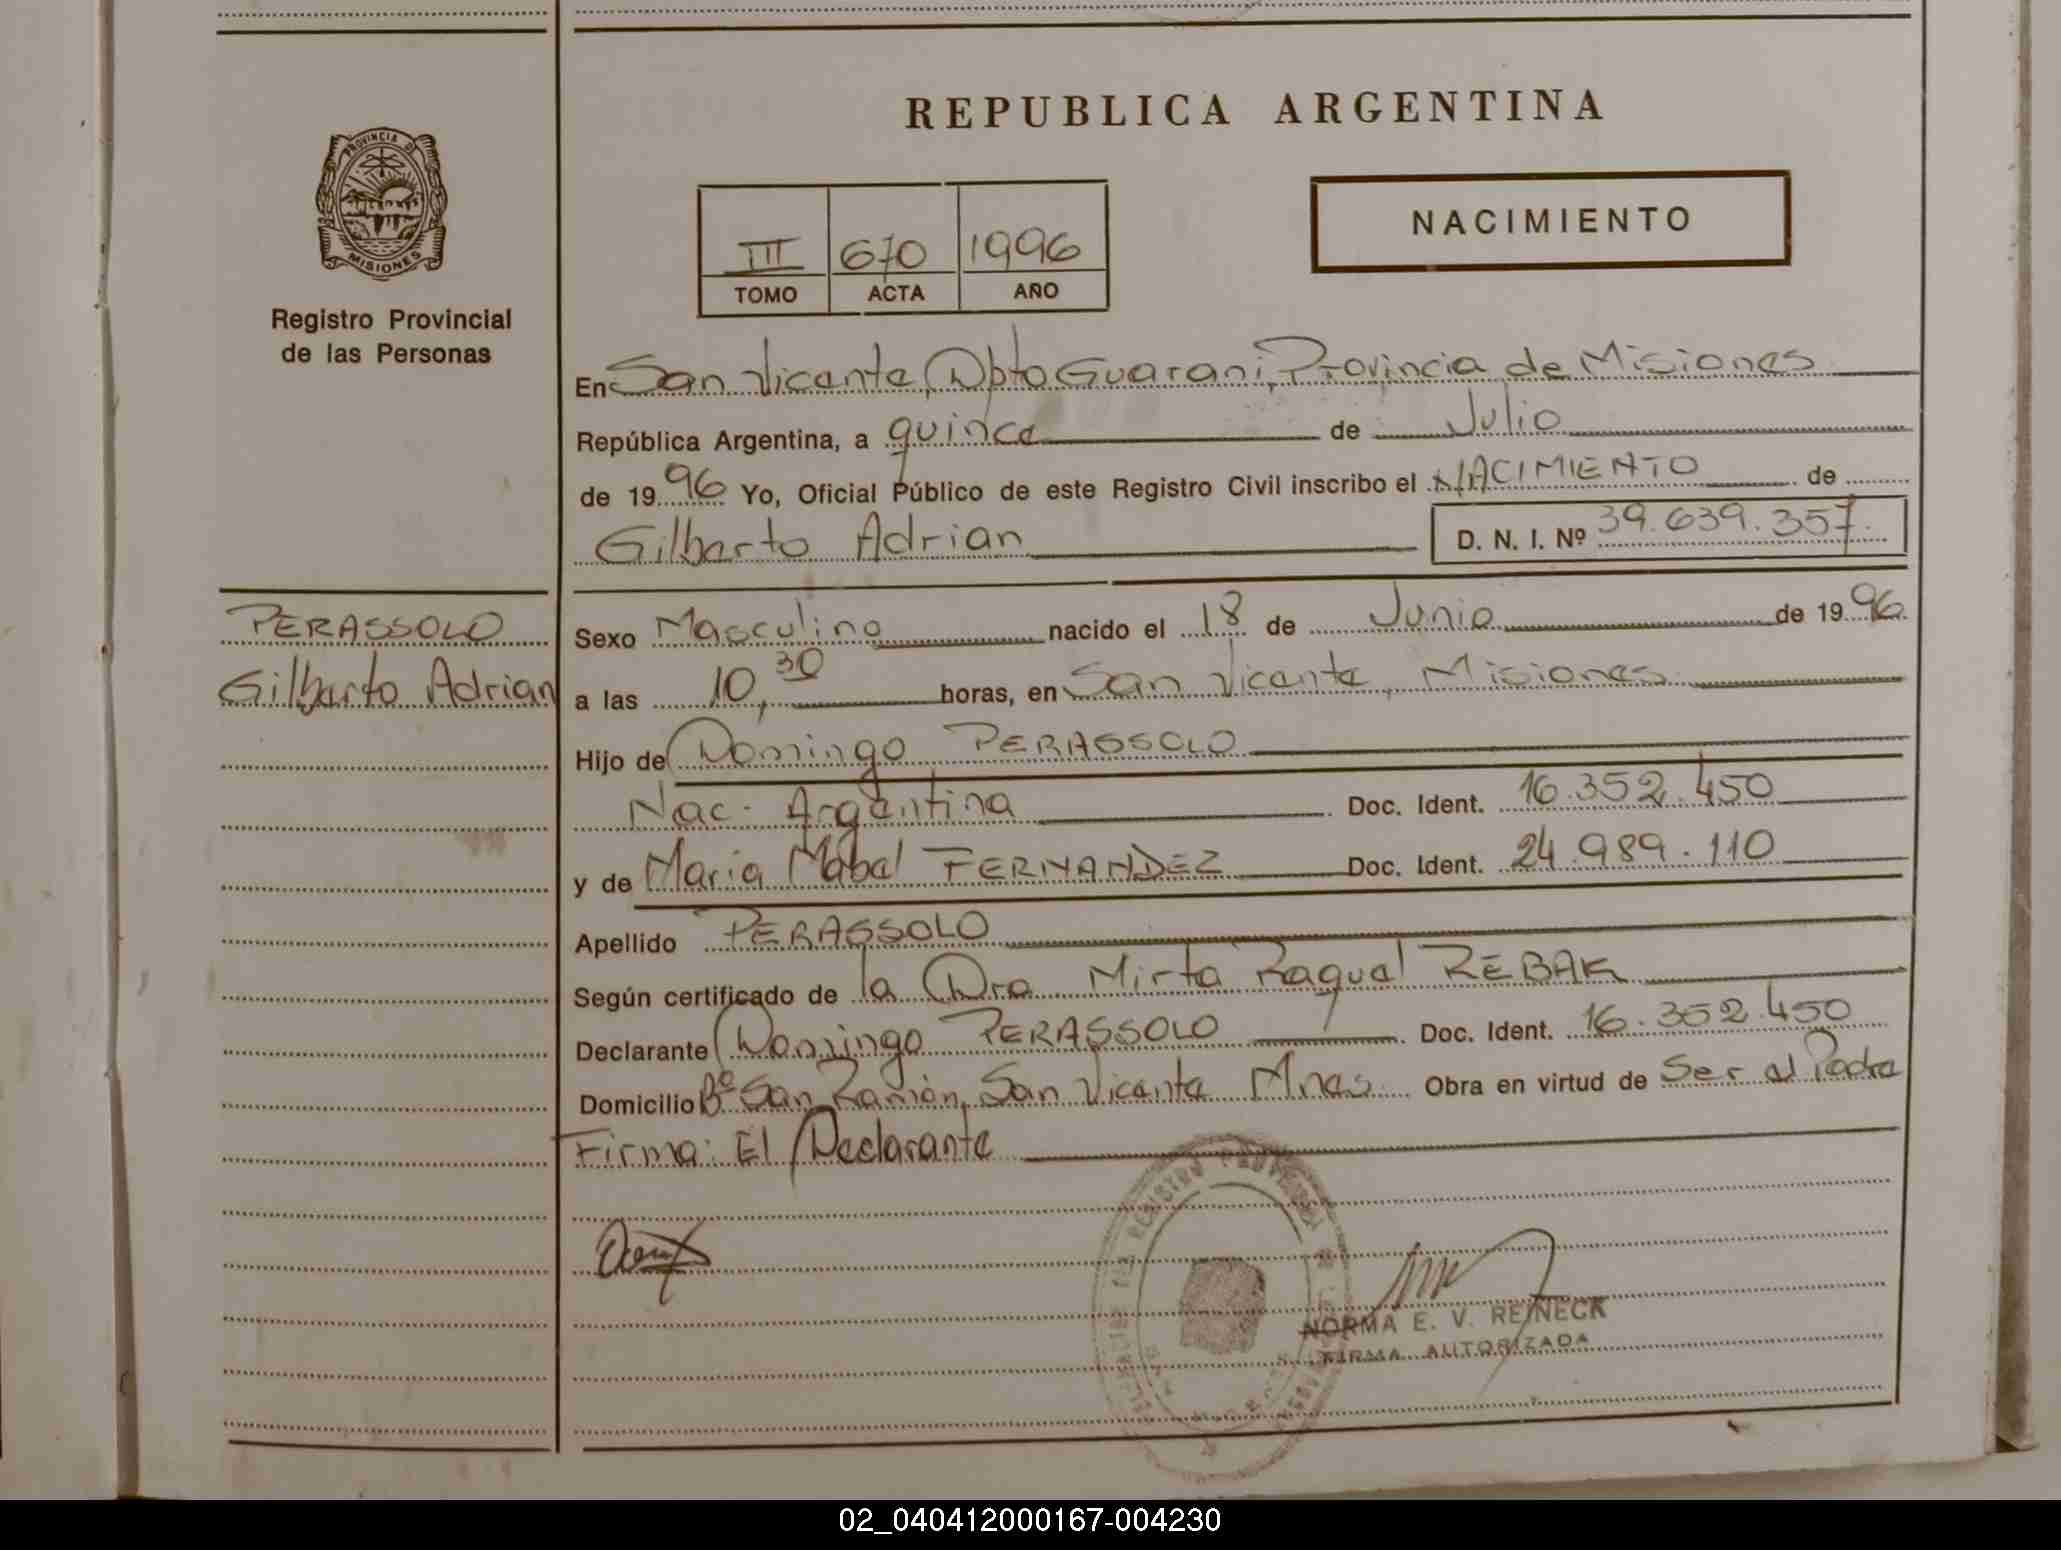 PROVINCIA DE
MISIONES
Registro Provincial
de las Personas
PERASSOLO
Gilberto Adrian
REPUBLICA ARGENTINA
NACIMIENTO
III 670 1996
TOMO ACTA AÑO
En San Vicente, Dpto Guarani, Provincia de Misiones
República Argentina, a quince de Julio
de 1996 Yo, Oficial Público de este Registro Civil inscribo el NACIMIENTO de
Gilberto Adrian D. N. I. Nº 39.639.357.
Sexo Masculino nacido el 18 de Junio de 1996.
a las 10,30 horas, en San Vicente, Misiones
Hijo de Domingo PERASSOLO
Nac. Argentina Doc. Ident. 16.352.450
y de Maria Mabel FERNANDEZ Doc. Ident. 24.989.110
Apellido PERASSOLO
Según certificado de la Dra Mirta Raquel REBAK
Declarante Domingo PERASSOLO Doc. Ident. 16.352.450
Domicilio Bº San Ramón, San Vicente Mnes. Obra en virtud de Ser el Padre
Firma: El Declarante
NORMA E. V. REINECK
FIRMA AUTORIZADA
02_040412000167-004230